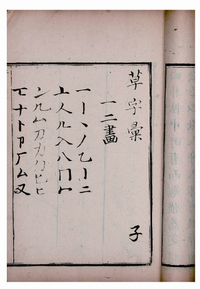 草字彙
子
一二畫
一丨丶丿乙亅二
亠人儿入八冂冖
冫几凵刀力勹匕匚
匸十卜卩厂厶又